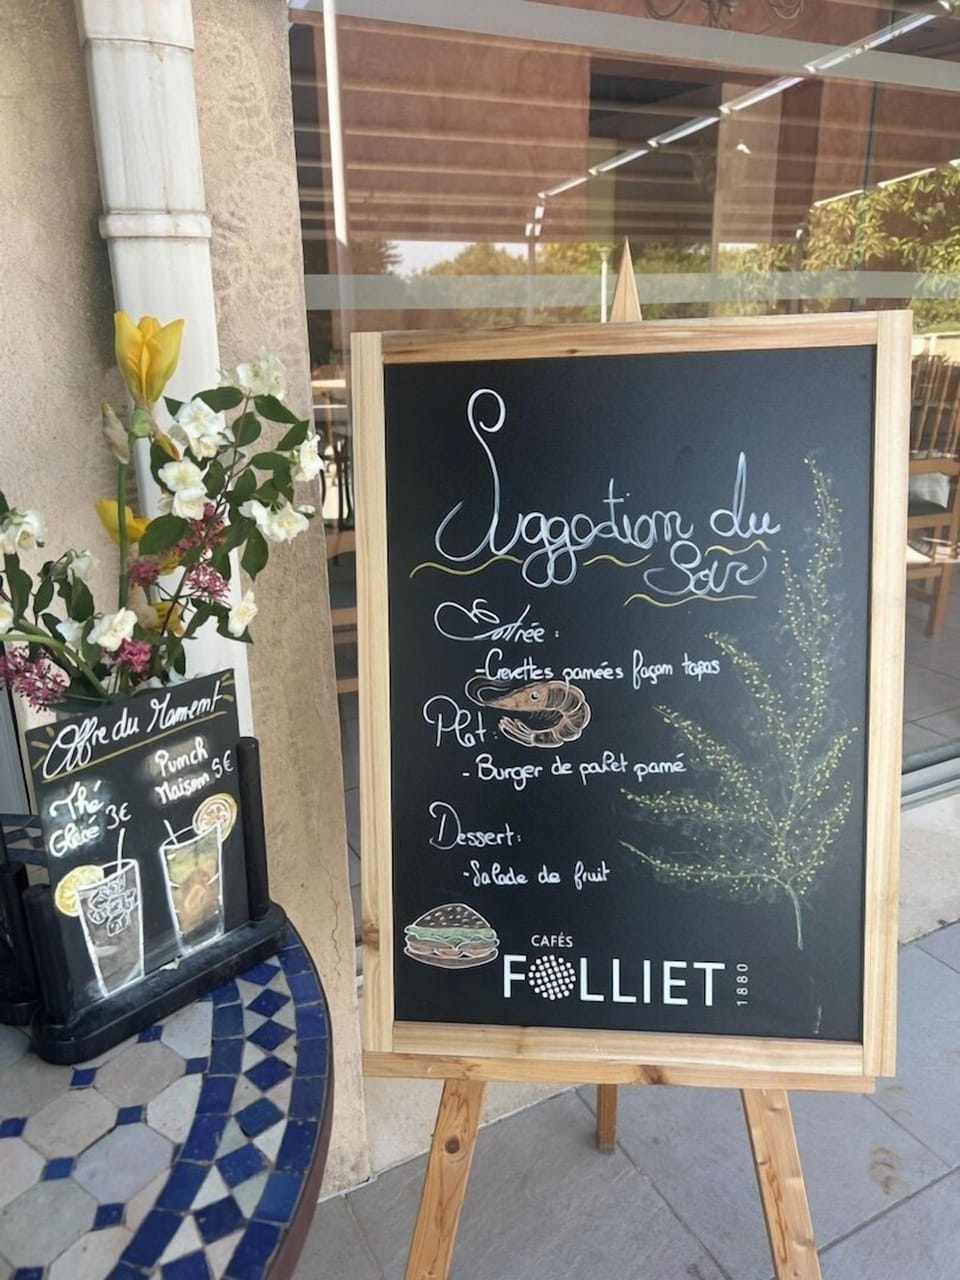 Offre du Moment
Thé
Glacé 3€
Punch
Maison 5€
Suggestion du
Soir
Entrée :
-Crevettes panées façon tapas
Plat :
- Burger de poulet pané
Dessert :
-Salade de fruit
CAFÉS
FOLLIET
1880